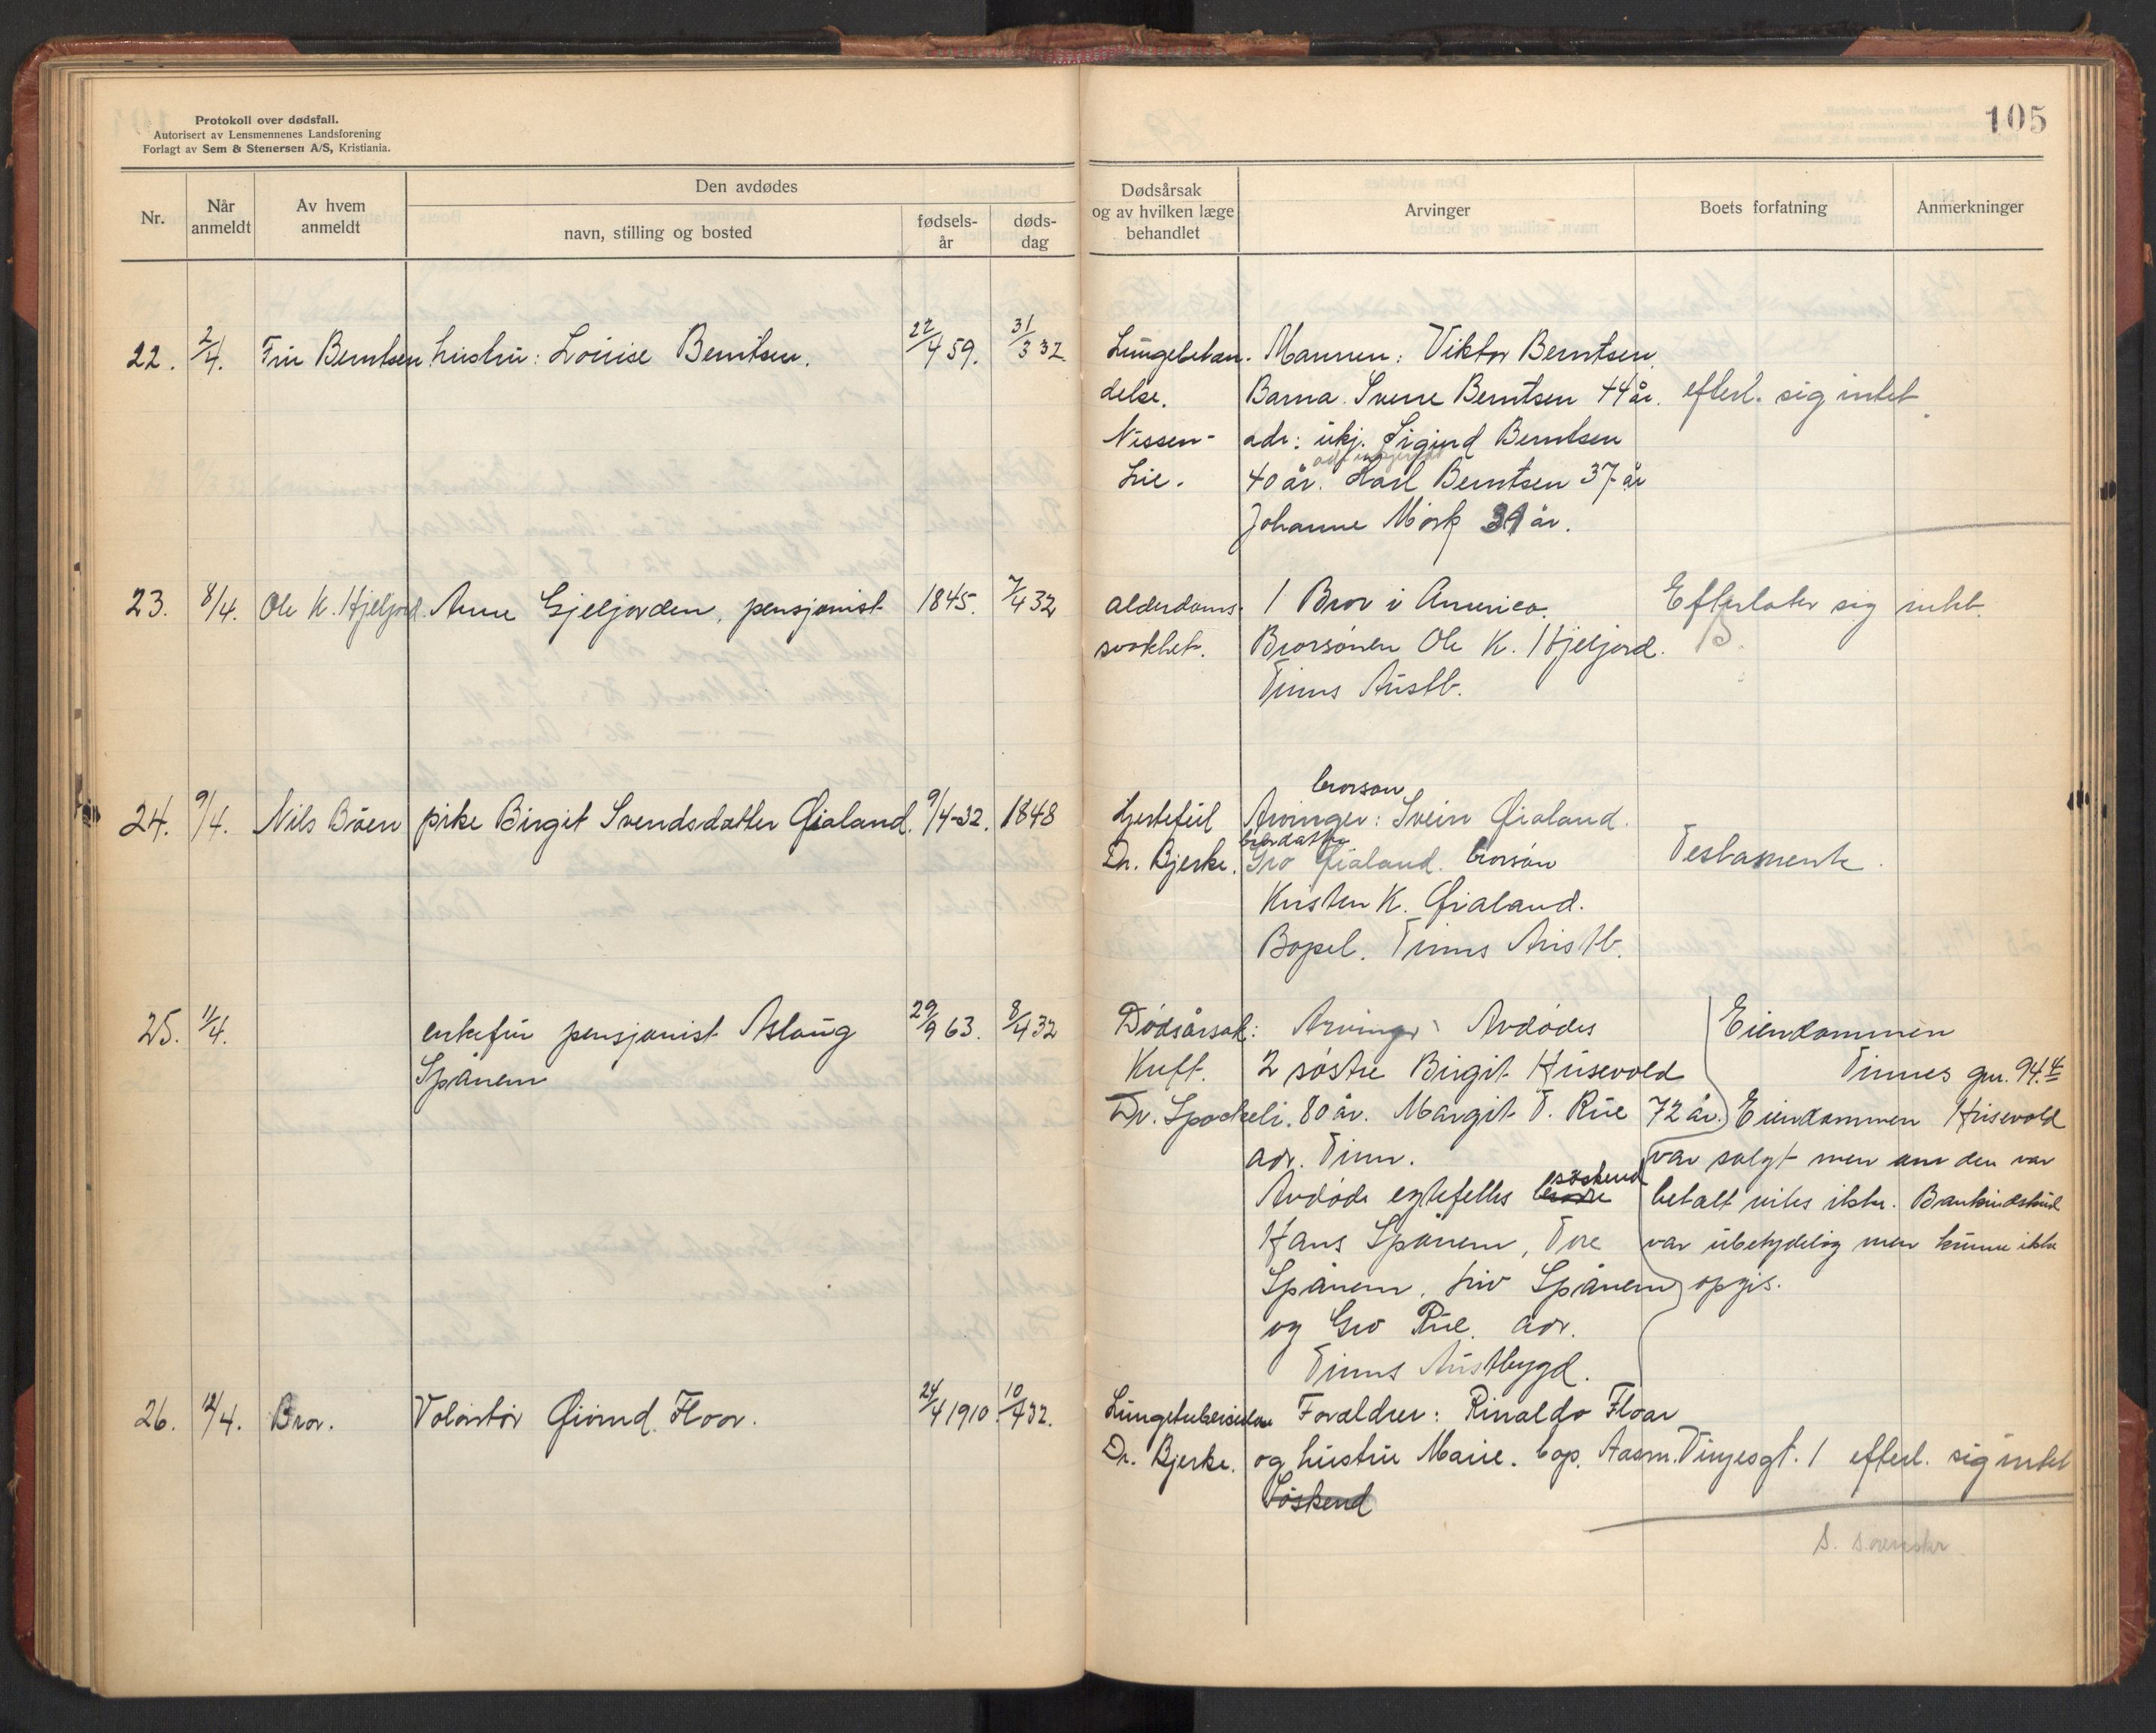 Protokoll over dødsfall.
Autorisert av Lensmennenes Landsforening
Forlagt av Sem & Stenersen A/S, Kristiania.
105
Nr.
Når anmeldt
Av hvem anmeldt
Den avdødes
navn, stilling og bosted
fødsels-år
døds-dag
Dødsårsak og av hvilken læge behandlet
Arvinger
Boets forfatning
Anmerkninger
22. 2/4. Fru Berntsen hustru: Louise Berntsen. 22/4 59. 31/3 32 Lungebetæn- Mannen: Viktor Berntsen.
delse. Barna. Sverre Berntsen 44 år. efterl. sig intet
Nissen- adr: ukj. Sigurd Berntsen
Lie. 40 år. Karl Berntsen 37 år
Johanne Mørk 31 år.
23. 8/4. Ole K. Hjeljord. Anne Gjeljorden, pensjonist 1845. 7/4 32 alderdoms- 1 Bror i America. Efterlater sig intet.
svakhet. Brorsønen Ole K. Hjeljord.
Tinns Austb.
brorsøn
24. 9/4. Nils Bøen pike Birgit Svendsdatter Øialand. 9/4-32. 1848 Hjertefeil Arvinger: Svein Øialand.
brordatter
Dr. Bjerke. Gro Øialand. brorsøn Testamente.
Kristen K. Øialand.
Bopel. Tinns Austb.
25. 11/4. enkefru pensjonist Aslaug 29/9 63. 8/4 32 Dødsårsak: Arvinger Avdødes Eiendommen
Spånem Kreft. 2 søstre Birgit Husevold Tinnes gnr. 94.4
Dr. Spockeli. 80 år. Margit T. Rue 72 år. Eiendommen Husevold
adr. Tinn. var solgt men om den var
søskend
Avdøde egtefelles betalt vites ikke. Bankindskud
Hans Spånem, Tore var ubetydelig men kunne ikke
Spånem, Liv Spånem opgis.
og Gro Rue. adr.
Tinns Austbygd.
26. 12/4. Bror. Volontør Øivind Floor. 24/4 1910. 10/4 32. Lungetuberkulose Foraldrer: Rinaldo Floor
Dr. Bjerke. og hustru Marie. bop. Aasm. Vinjesgt. 1 efterl. sig intet
Søskend